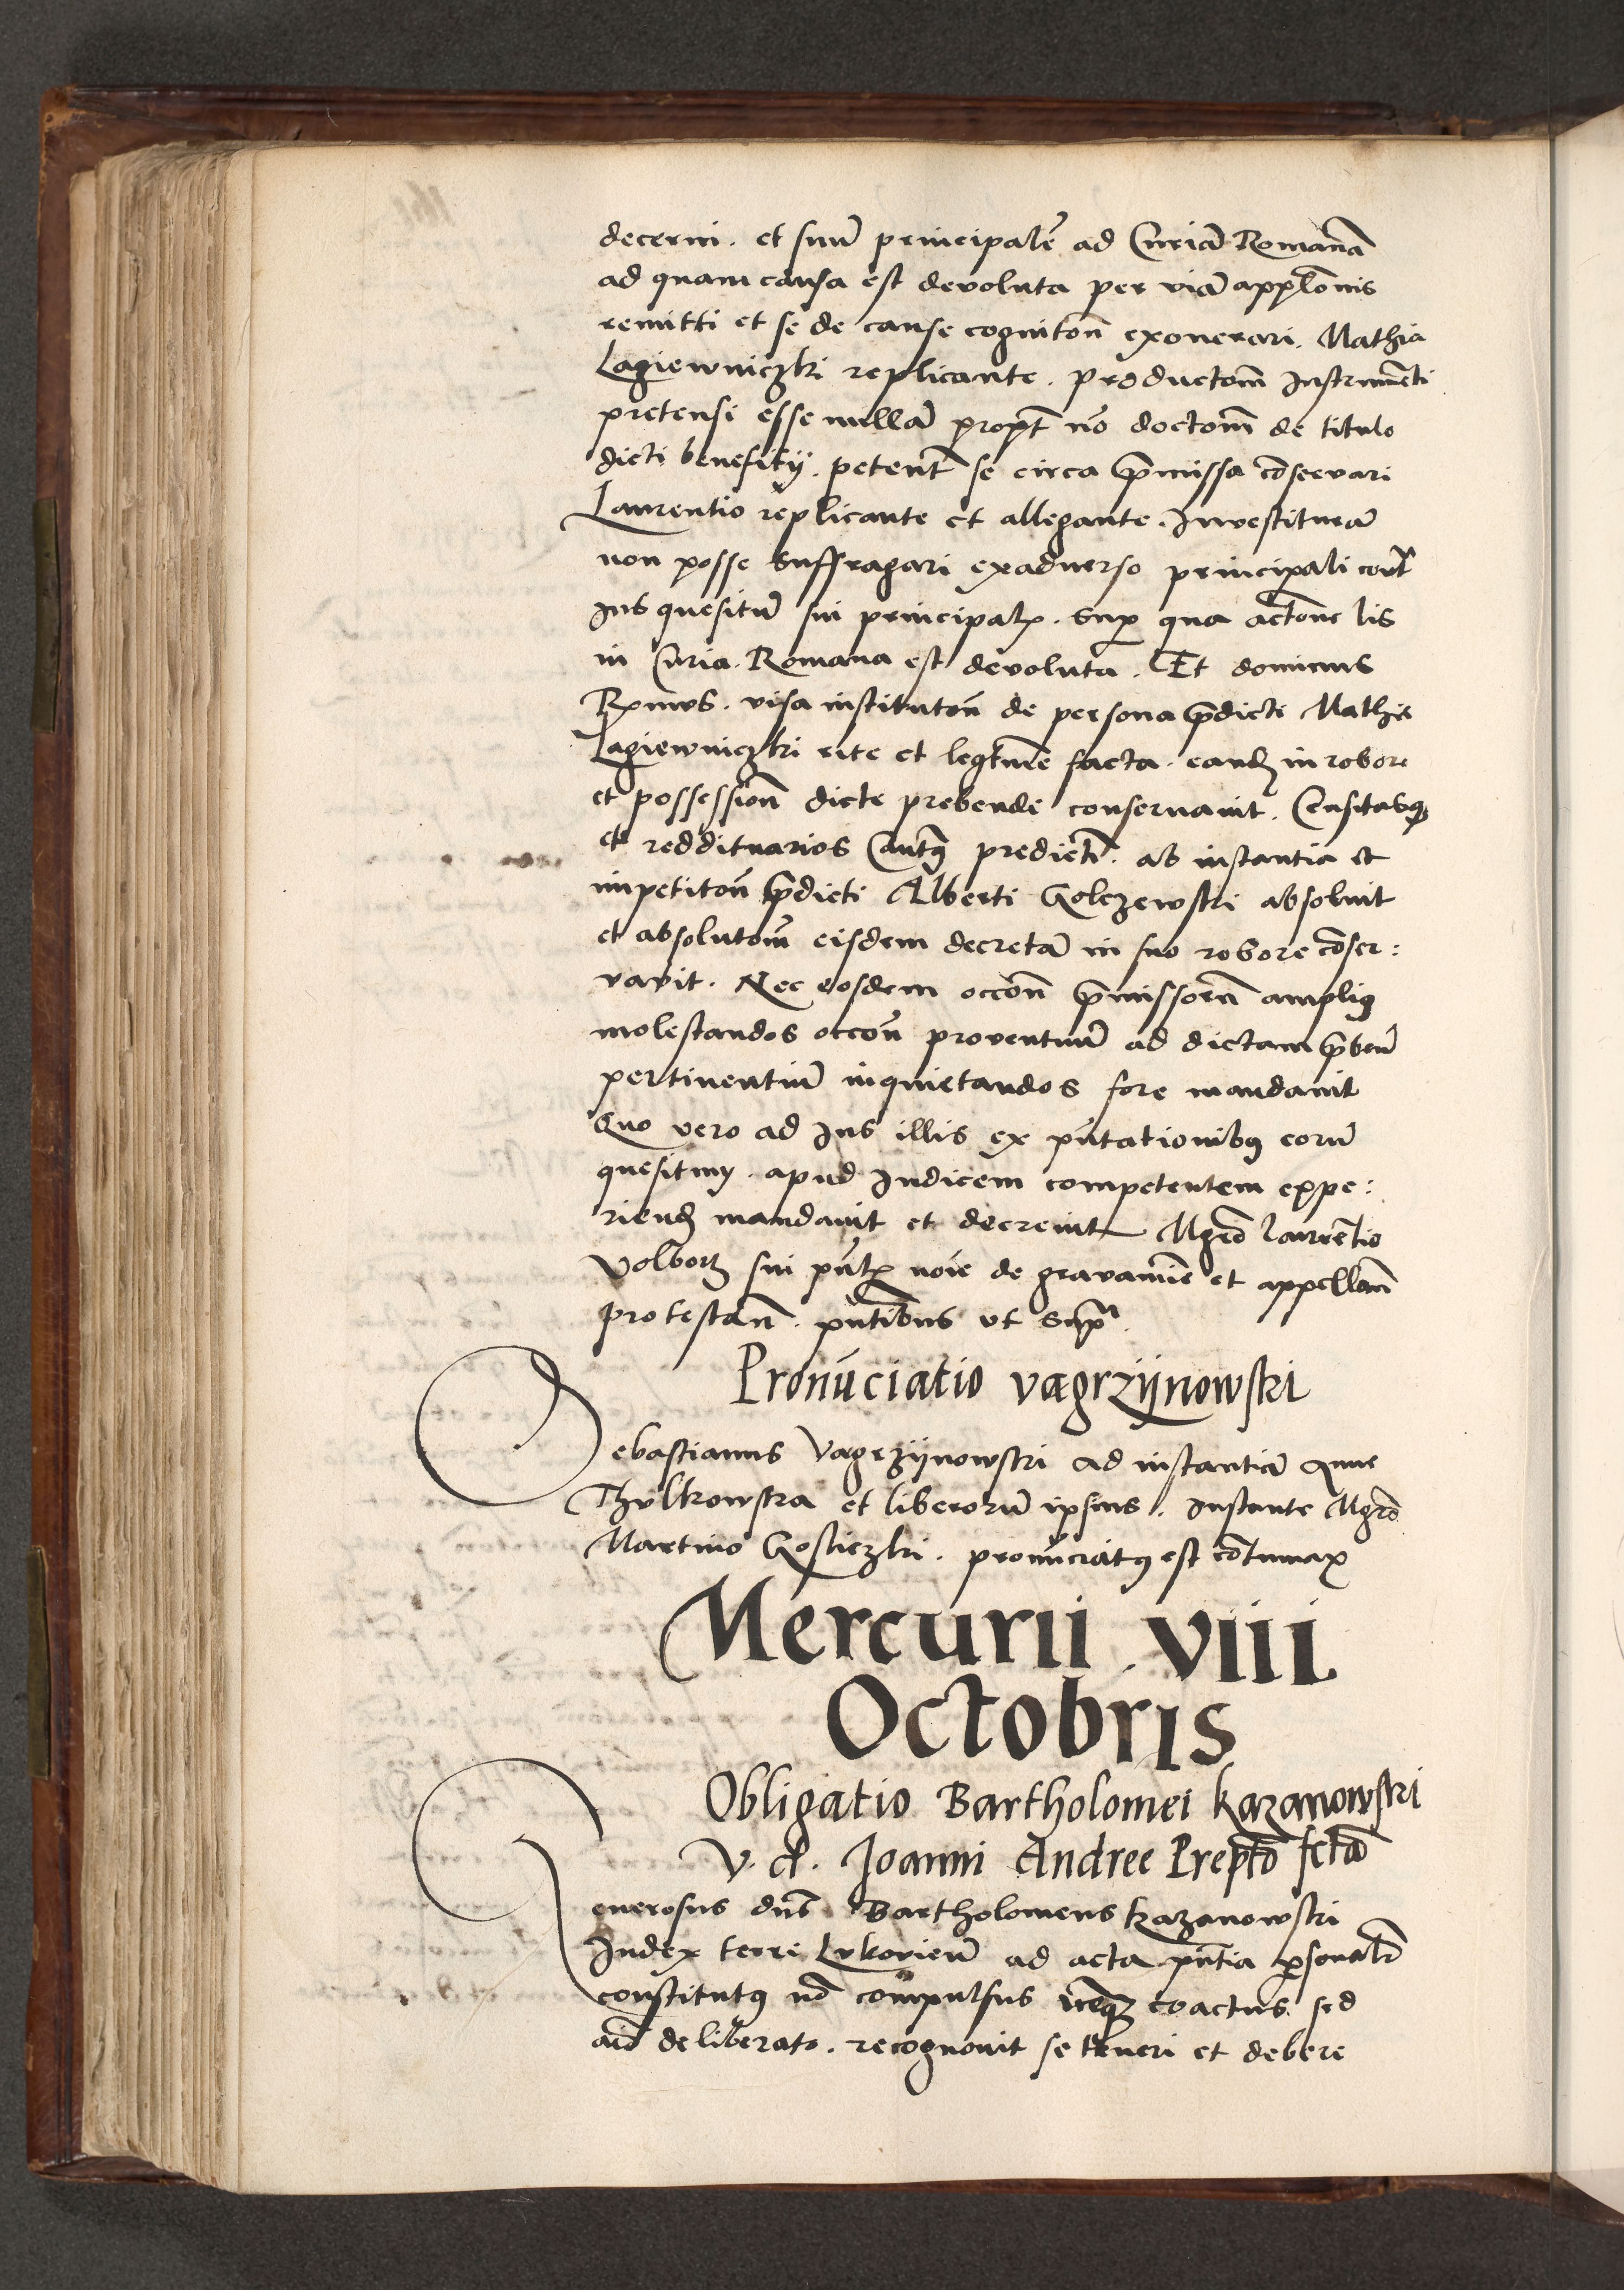 decerni. et suū principalē ad Curiā Romanā
ad quam causa est devoluta per viā appłonis
remitti et se de cause cognitoñ exonerari. Mathia
Lagiewniczki replicante. productoñm Instrumēti
pretensi esse nullā propt nō doctoñm de titulo
dicti beneficij. petenť se circa p̄missa cōservari
Laurentio replicante et allegante. Investiturā
non posse suffragari exadverso principali contᵃ
Ius quesitū sui principalꝫ. sup qua actone lis
in Curia Romana est devoluta. Et dominus
Rᵐus. visa institutoñ de persona p̄dicti Mathie
Lagiewniczki rite et legtime facta. eandꝫ in robore
et possessioñ dicte prebende conservavit. Censitasqꝫ
et reddituarios predicti. ab instantia et
impetitoñ p̄dicti Alberti Golczewski absolvit
et absolutoñm eisdem decretā in suo robore cōser:
vavit. Nec eosdem occoñ p̄missorū ampliꝰ
molestandos occoñ proventuū ad dictam p̄bendᵐ
pertinentiū inquietandos fore mandavit
Quo vero ad Ius illis ex pūtationibꝰ eorū
quesitum. apud Iudicem competentem expe:
riendꝫ mandavit et decrevit Mgrō laurētio
Volborz sui pńlꝫ noīe de gravamīe et appellañ
protestañ. pñtibus ut supᵃ.
Pronūciatio vagrzijnowski
Sebastianus Vagrzijnowski ad instantiā Anne
Thylkowska et liberorū ipsius. Instante Mgrō
Martino Gosliczki. pronūciatꝰ est cōtumax
Mercurii. viii
Octobris
Obligatio Bartholomei kazanowski
V. d. Joanni Andree Preptō fctā
Generosus dñs Bartholomeus kazanowski
Iudex terre Lukovieñ ad acta pñtia psonalr
constitutꝰ nō compulsus neqꝫ coactus. sed
aīō deliberato. recognovit se teneri et debere